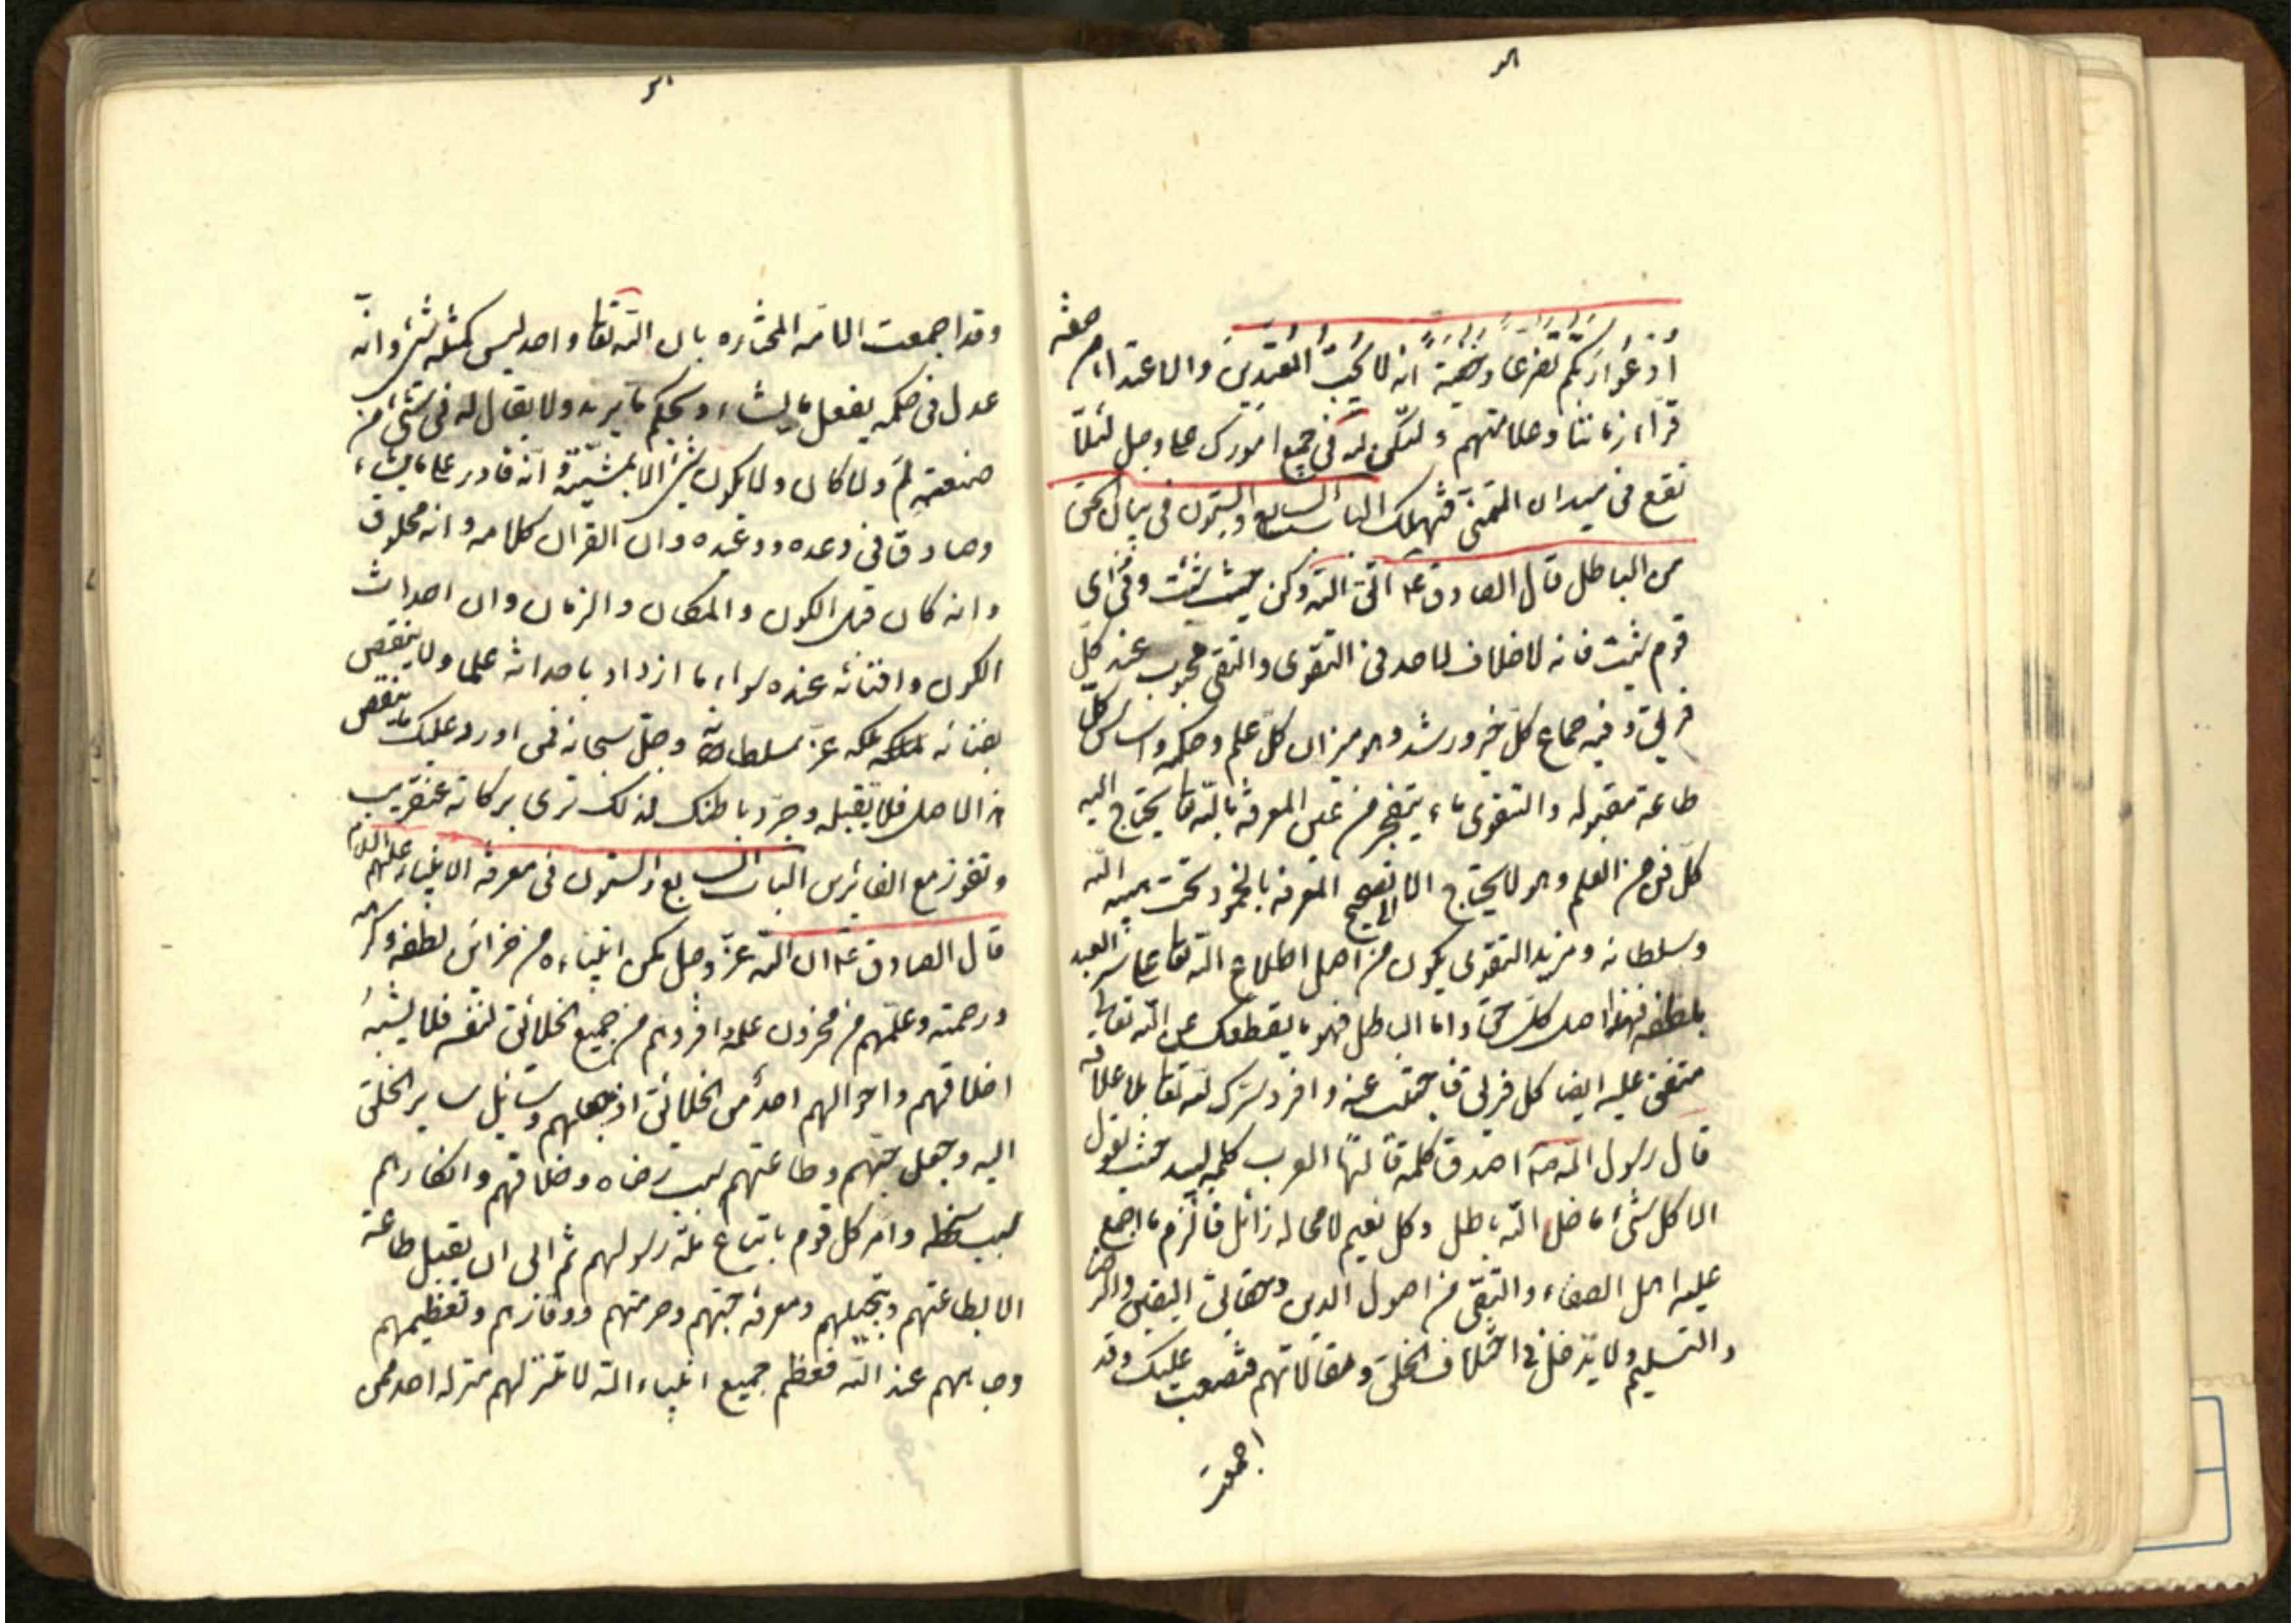 ادعوا ربكم تضرعا وخفية انه لا يحب المعتدين والاعتداء من صفة
قراء زماننا وعلامتهم ولتكن لله في جميع امورك على وجل لئلا
تقع في ميدان التمني فتهلك الباب السابع والستون في بيان الحق
من الباطل قال الصادق ع اتق الله وكن حيث شئت وفي اي
قوم شئت فانه لا خلاف لاحد في التقوى والتقى محبوب عند كل
فريق وفيه جماع كل خير ورشد وهو ميزان كل علم وحكمه واساس كل
طاعة مقبوله والتقوى ماء ينفجر من عين المعرفة بالله تعا يحتاج اليه
كل فن من العلم وهو لا يحتاج الا الى تصحيح المعرفة بالخمود تحت هيبه الله
وسلطانه ومزيد التقوى يكون من اصل اطلاع الله تعا على سر العبد
بلطفه فهذا اصل كل حق واما الباطل فهو ما يقطعك عن الله تعالى
متفق عليه ايضا كل فريق فاجتنب عنه وافرد سرك لله تعا بلا علاقه
قال رسول الله ص اصدق كلمه قالتها العرب كلمه لبيد حيث يقول
الا كل شئ ما خلا الله باطل وكل نعيم لا محاله زائل فالزم ما اجمع
عليه اهل الصفاء والتقى من اصول الدين وحقائق اليقين والرضا
والتسليم ولا تدخل في اختلاف الخلق ومقالاتهم فتصعب عليك وقد
اجمعت
وقد اجمعت الامة المختاره بان الله تعا واحد ليس كمثله شئ وانه
عدل في حكمه يفعل ما يشاء ويحكم ما يريد ولا يقال له في شئ من
صنعته لم ولا كان ولا يكون شئ الا بمشيته وانه قادر على ما يشاء
وصادق في وعده ووعيده وان القران كلامه وانه مخلوق
وانه كان قبل الكون والمكان والزمان وان احداث
الكون وافنائه عنده سواء ما ازداد باحداثه علما ولا ينقص
بفنائه ملكه عز سلطانه وجل سبحانه فمن اورد عليك ما ينقض
هذا الاصل فلا تقبله وجرد باطنك لذلك ترى بركاته عنقريب
وتفوز مع الفائزين الباب السابع والستون في معرفة الانبياء عليهم السلام
قال الصادق ع ان الله عز وجل مكن انبيائه من خزائن لطفه وكرمه
ورحمته وعلمهم من مخزون علمه وافردهم من جميع الخلائق لنفسه فلا يشبه
اخلاقهم واحوالهم احد من الخلائق اذ جعلهم وسائل ساير الخلق
اليه وجعل حبهم وطاعتهم سبب رضاه وخلافهم وانكارهم
سبب سخطه وامر كل قوم باتباع ملة رسولهم ثم ابى ان يقبل طاعة
الا بطاعتهم وتبجيلهم ومعرفة حبهم وحرمتهم ووقارهم وتعظيمهم
وجاههم عند الله فعظم جميع انبياء الله لا تنزلهم منزله احد ممن